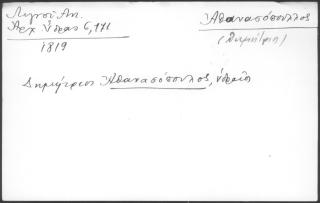 Λιγνοῦ Ἀν.
Ἀρχ. Ὕδρας 6, 171
1819
Ἀθανασόπουλλος
(Δημήτριος)
Δημήτριος Ἀθανασόπουλος, ὑδραῖος